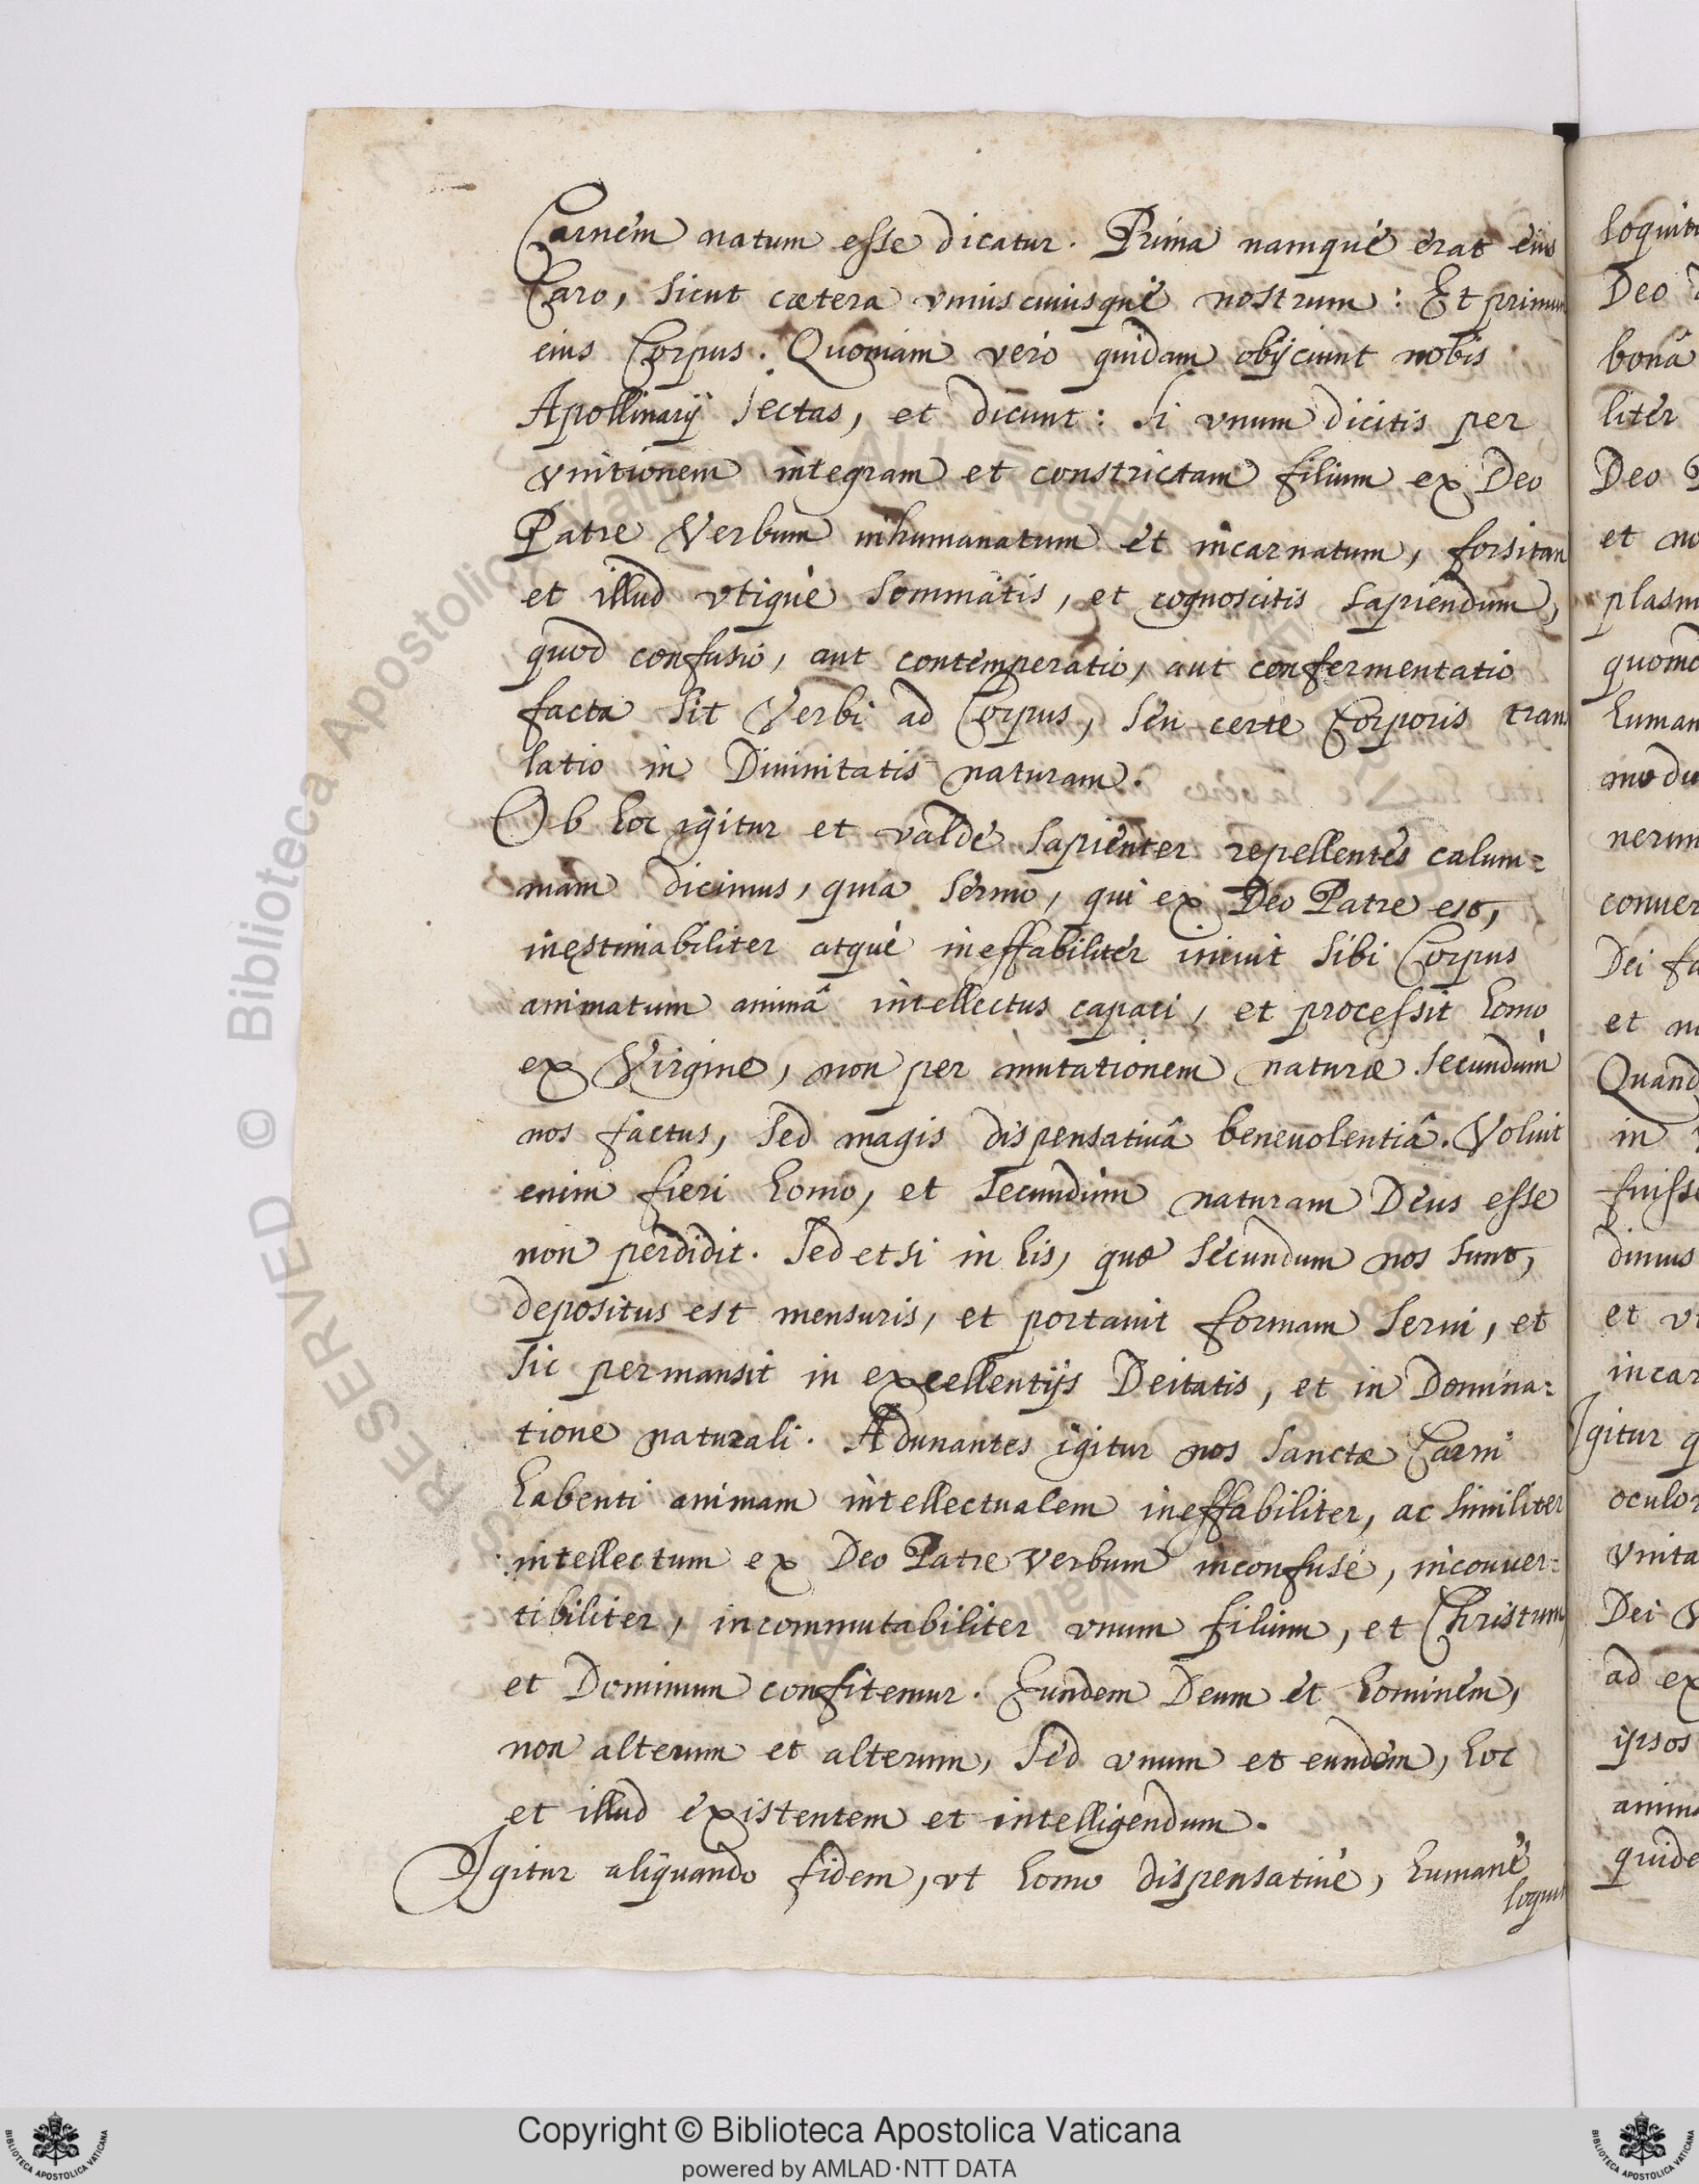 Carnem natum esse dicatur. Prima namque erat eius
Caro, sicut cætera vniuscuiusque nostrum: Et primum
eius Corpus. Quoniam vero quidam obijciunt nobis
Apollinarij sectas, et dicunt: Si vnum dicitis per
vnitionem integram et constrictam filium ex Deo
Patre Verbum inhumanatum et incarnatum, forsitan
et illud vtique sommatis, et cognoscitis sapiendum,
quod confusio, aut contemperatio, aut confermentatio
facta sit Verbi ad Corpus, seu certe Corporis trans
latio in Diuinitatis naturam.
Ob hoc igitur et valde sapienter repellentes calum=
niam dicimus, quia sermo, qui ex Deo Patre est,
inestimabiliter atque ineffabiliter iniuit sibi Corpus
animatum animâ intellectus capaci, et processit homo
ex Virgine, non per mutationem naturæ secundùm
nos factus, sed magis dispensatiuâ beneuolentiâ. Voluit
enim fieri homo, et secundùm naturam Deus esse
non perdidit. Sed etsi in his, quæ secundum nos sunt,
depositus est mensuris, et portauit formam serui, et
sic permansit in excellentijs Deitatis, et in Domina=
tione naturali. Adunantes igitur nos sanctæ Carni
habenti animam intellectualem ineffabiliter, ac similiter
intellectum ex Deo Patre Verbum inconfuse, inconuer=
tibiliter, incommutabiliter vnum filium, et Christum
et Dominum confitemur. Eundem Deum et hominem,
non alterum et alterum, sed vnum et eundem, hoc
et illud existentem et intelligendum.
Igitur aliquando fidem, vt homo dispensatiuè, humanè
loquit
loquit
Deo
bonâ
liter
Deo
et
plasm
quomo
human
modu
nerum
conuer
Dei fa
et
Quand
in
fuisse
dimus
et vt
incar
Igitur q
oculor
vnita
Dei V
ad ex
ipsos
anima
quide
© Biblioteca Apostolica Vaticana
RESERVED
Copyright © Biblioteca Apostolica Vaticana
powered by AMLAD·NTT DATA
BIBLIOTECA APOSTOLICA VATICANA
BIBLIOTECA APOSTOLICA VATICANA